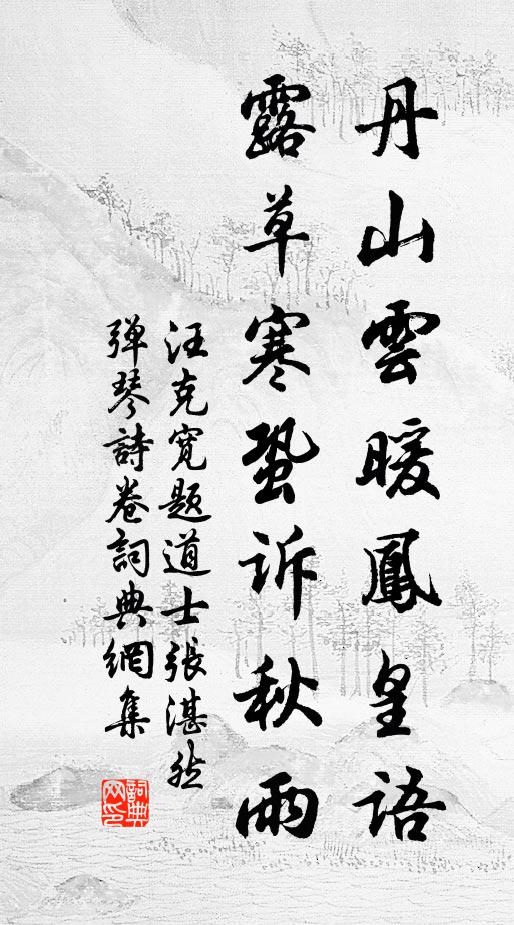 丹山雲暖鳳皇语
露草寒蛩诉秋雨
汪克寬题道士張湛然
弹琴詩卷詞典網集
詞典网印